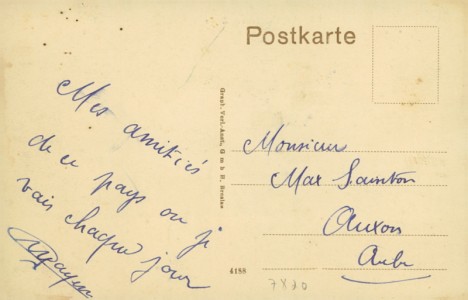 Postkarte
Mes amitiés
de ce pays ou je
vais chaque jour
Graph. Verl.-Anst., G m b H., Breslau
Monsieur
Max Sainton
Auxon
Aube
4188
7X20